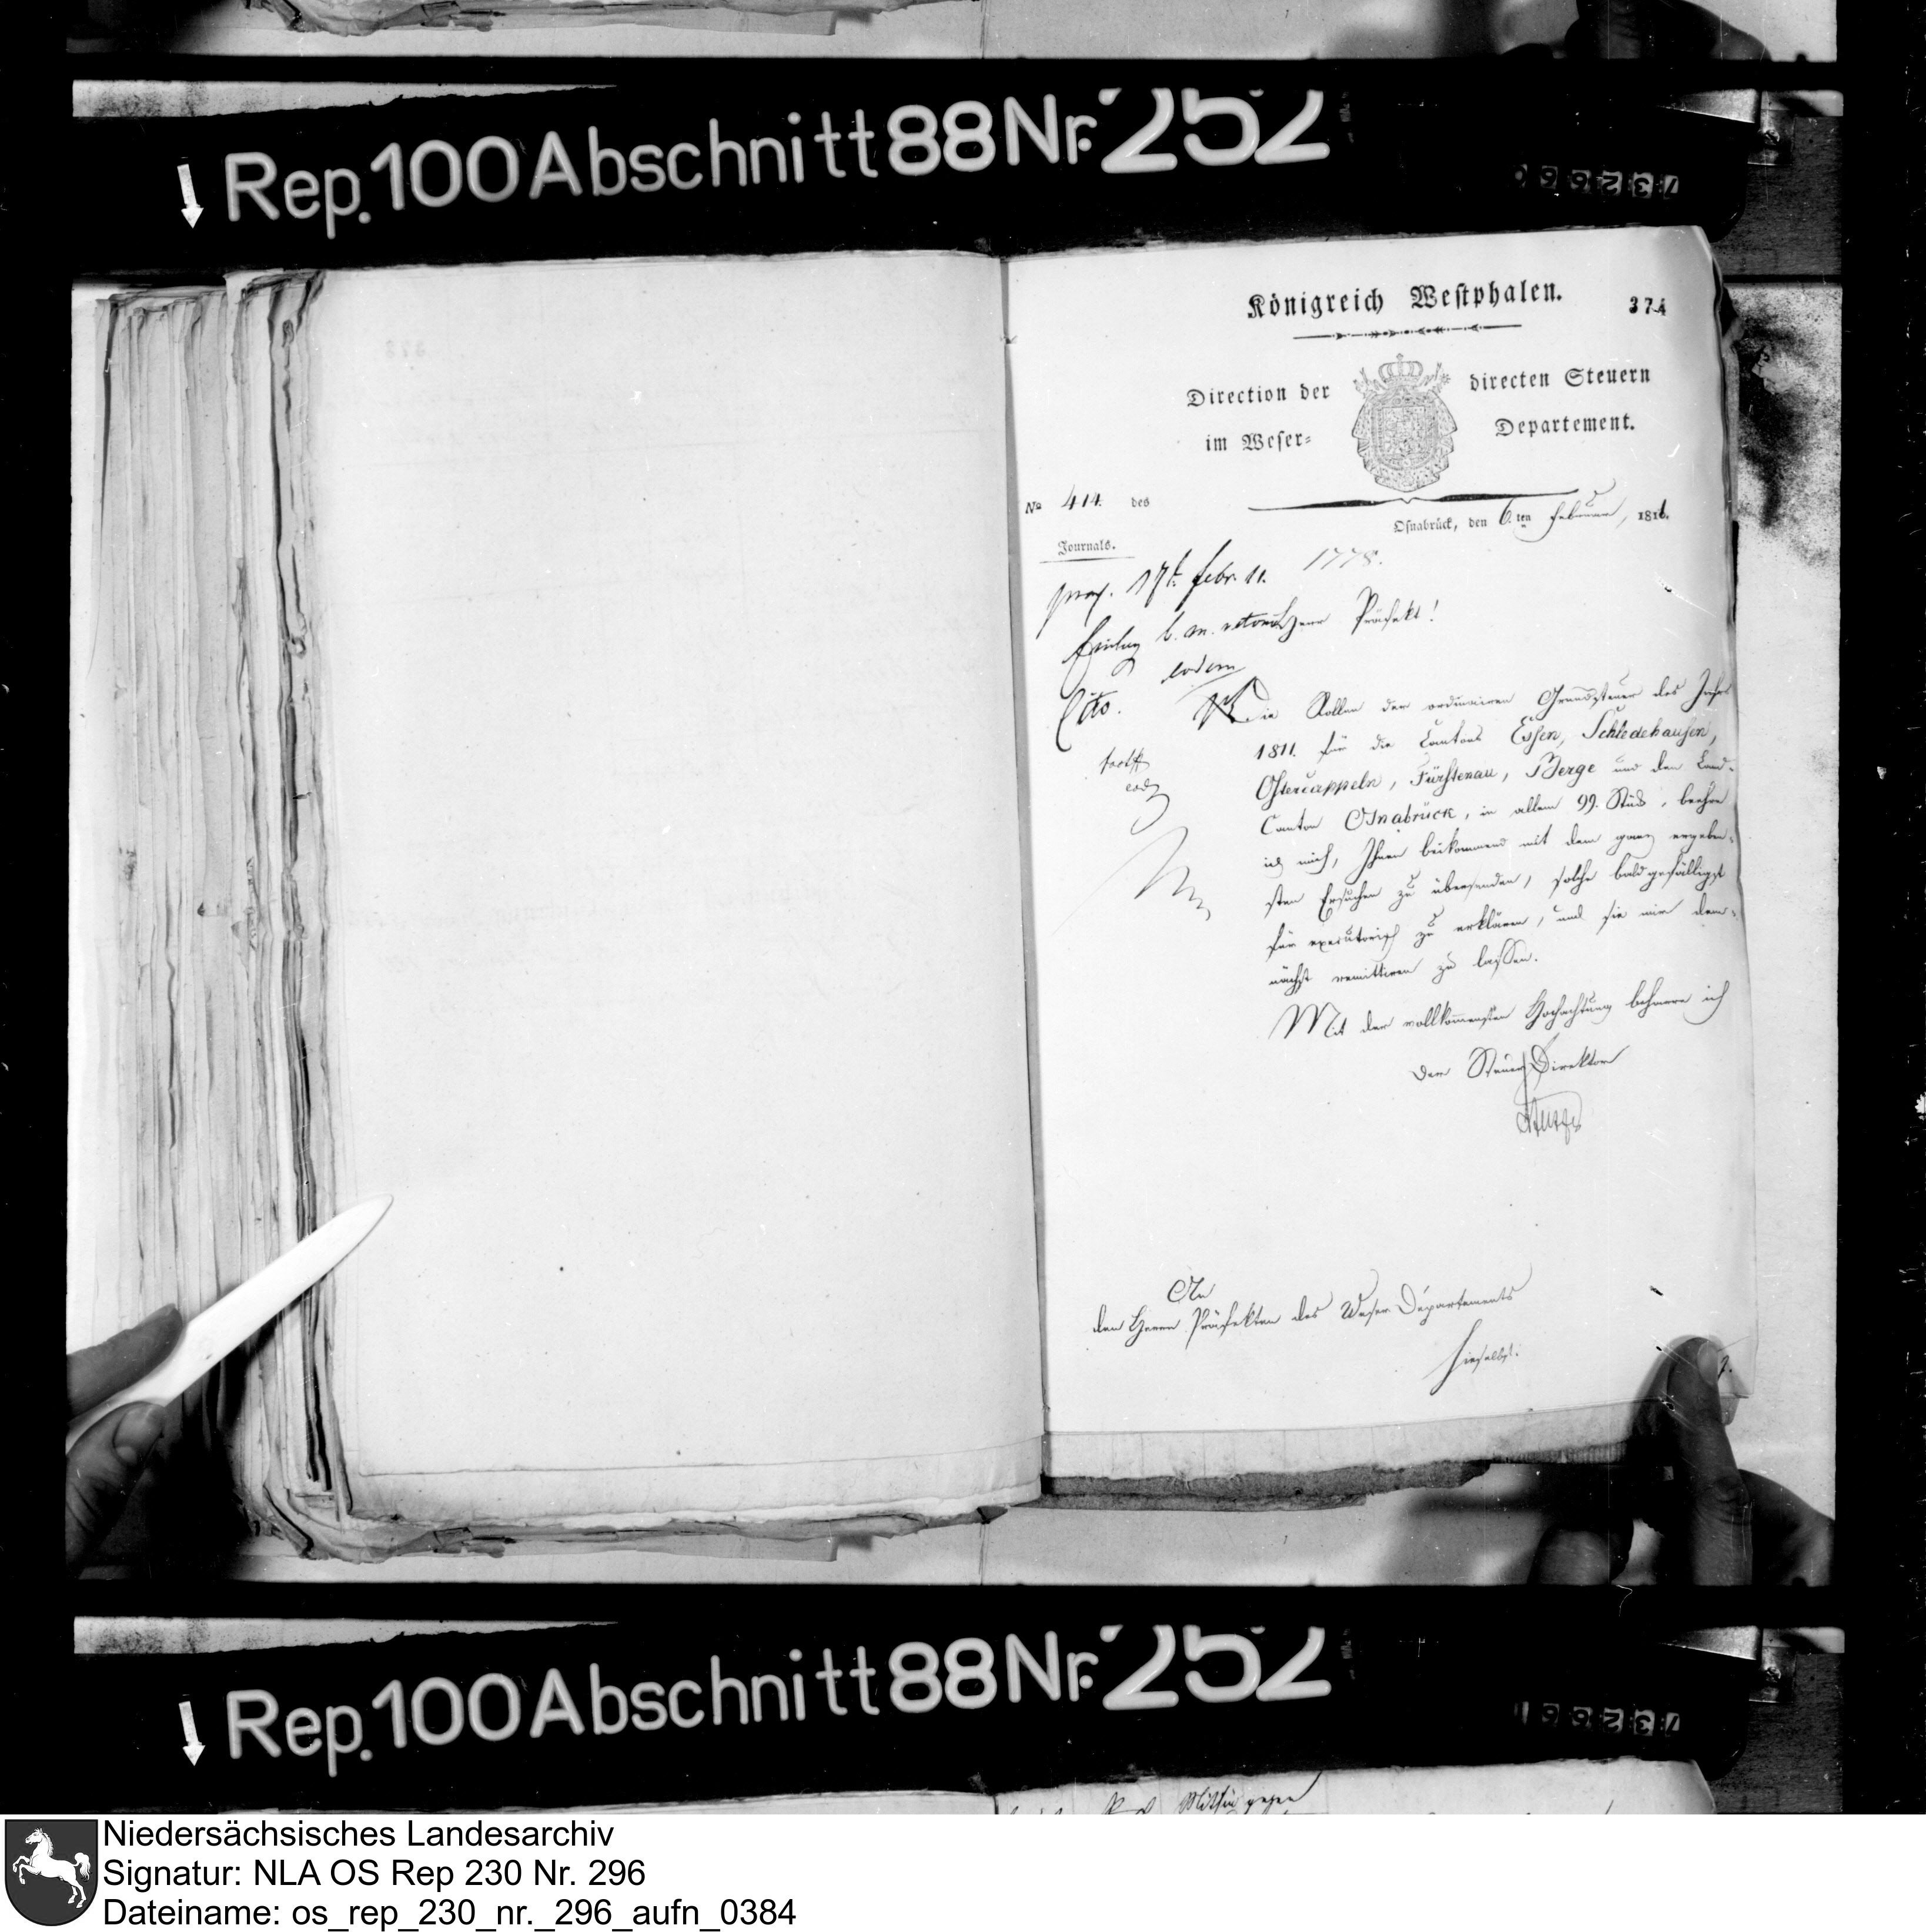 Rep. 100 Abschnitt 88 Nr. 252
Königreich Westphalen.
374
Direction der directen Steuern
im Weser- Departement.
No 414. des
Journals.
Osnabrück, den 6.ten Februar, 1811.
1778.
praes. 17t. Febr. 11.
Herr Präfekt!
eodem
Cito.
Die Rollen der ordinairen Grundsteuer des Jahrs
1811. für die Cantons Essen, Schledehausen,
Ostercappeln, Fürstenau, Berge und den Land-
Canton Osnabrück, in allem 99. Stück, beehre
ich mich, Ihnen beikommend mit dem ganz ergeben-
sten Ersuchen zu übersenden, solche baldgefälligst
für executorisch zu erklären, und sie mir dem-
nächst remittiren zu lassen.
Mit der vollkommensten Hochachtung beharre ich
Der Steuer Direktor
An
den Herrn Präfekten des Weser Departements
hieselbst.
Rep. 100 Abschnitt 88 Nr. 252
Niedersächsisches Landesarchiv
Signatur: NLA OS Rep 230 Nr. 296
Dateiname: os_rep_230_nr._296_aufn_0384